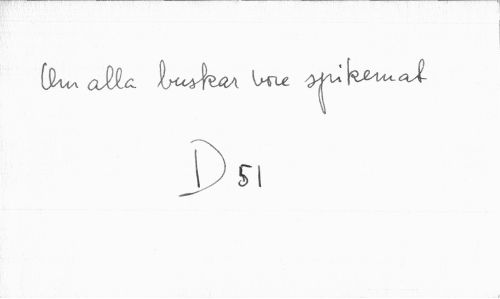 Om alla buskar vore spikemat
D 51